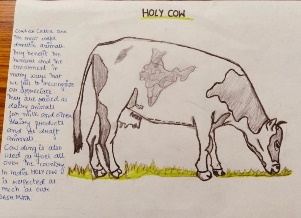 HOLY COW
Cows or Cattle are
the most useful
domestic animals.
They benefit the
humans and the
environment in
many ways that
we fail to recognize
or appreciate.
They are raised as
dairy animals
for milk and other
dairy products
and as draft
animals.
Cow dung is also
used as fuel all
over the country.
In India HOLY COW
is respected as
much as our